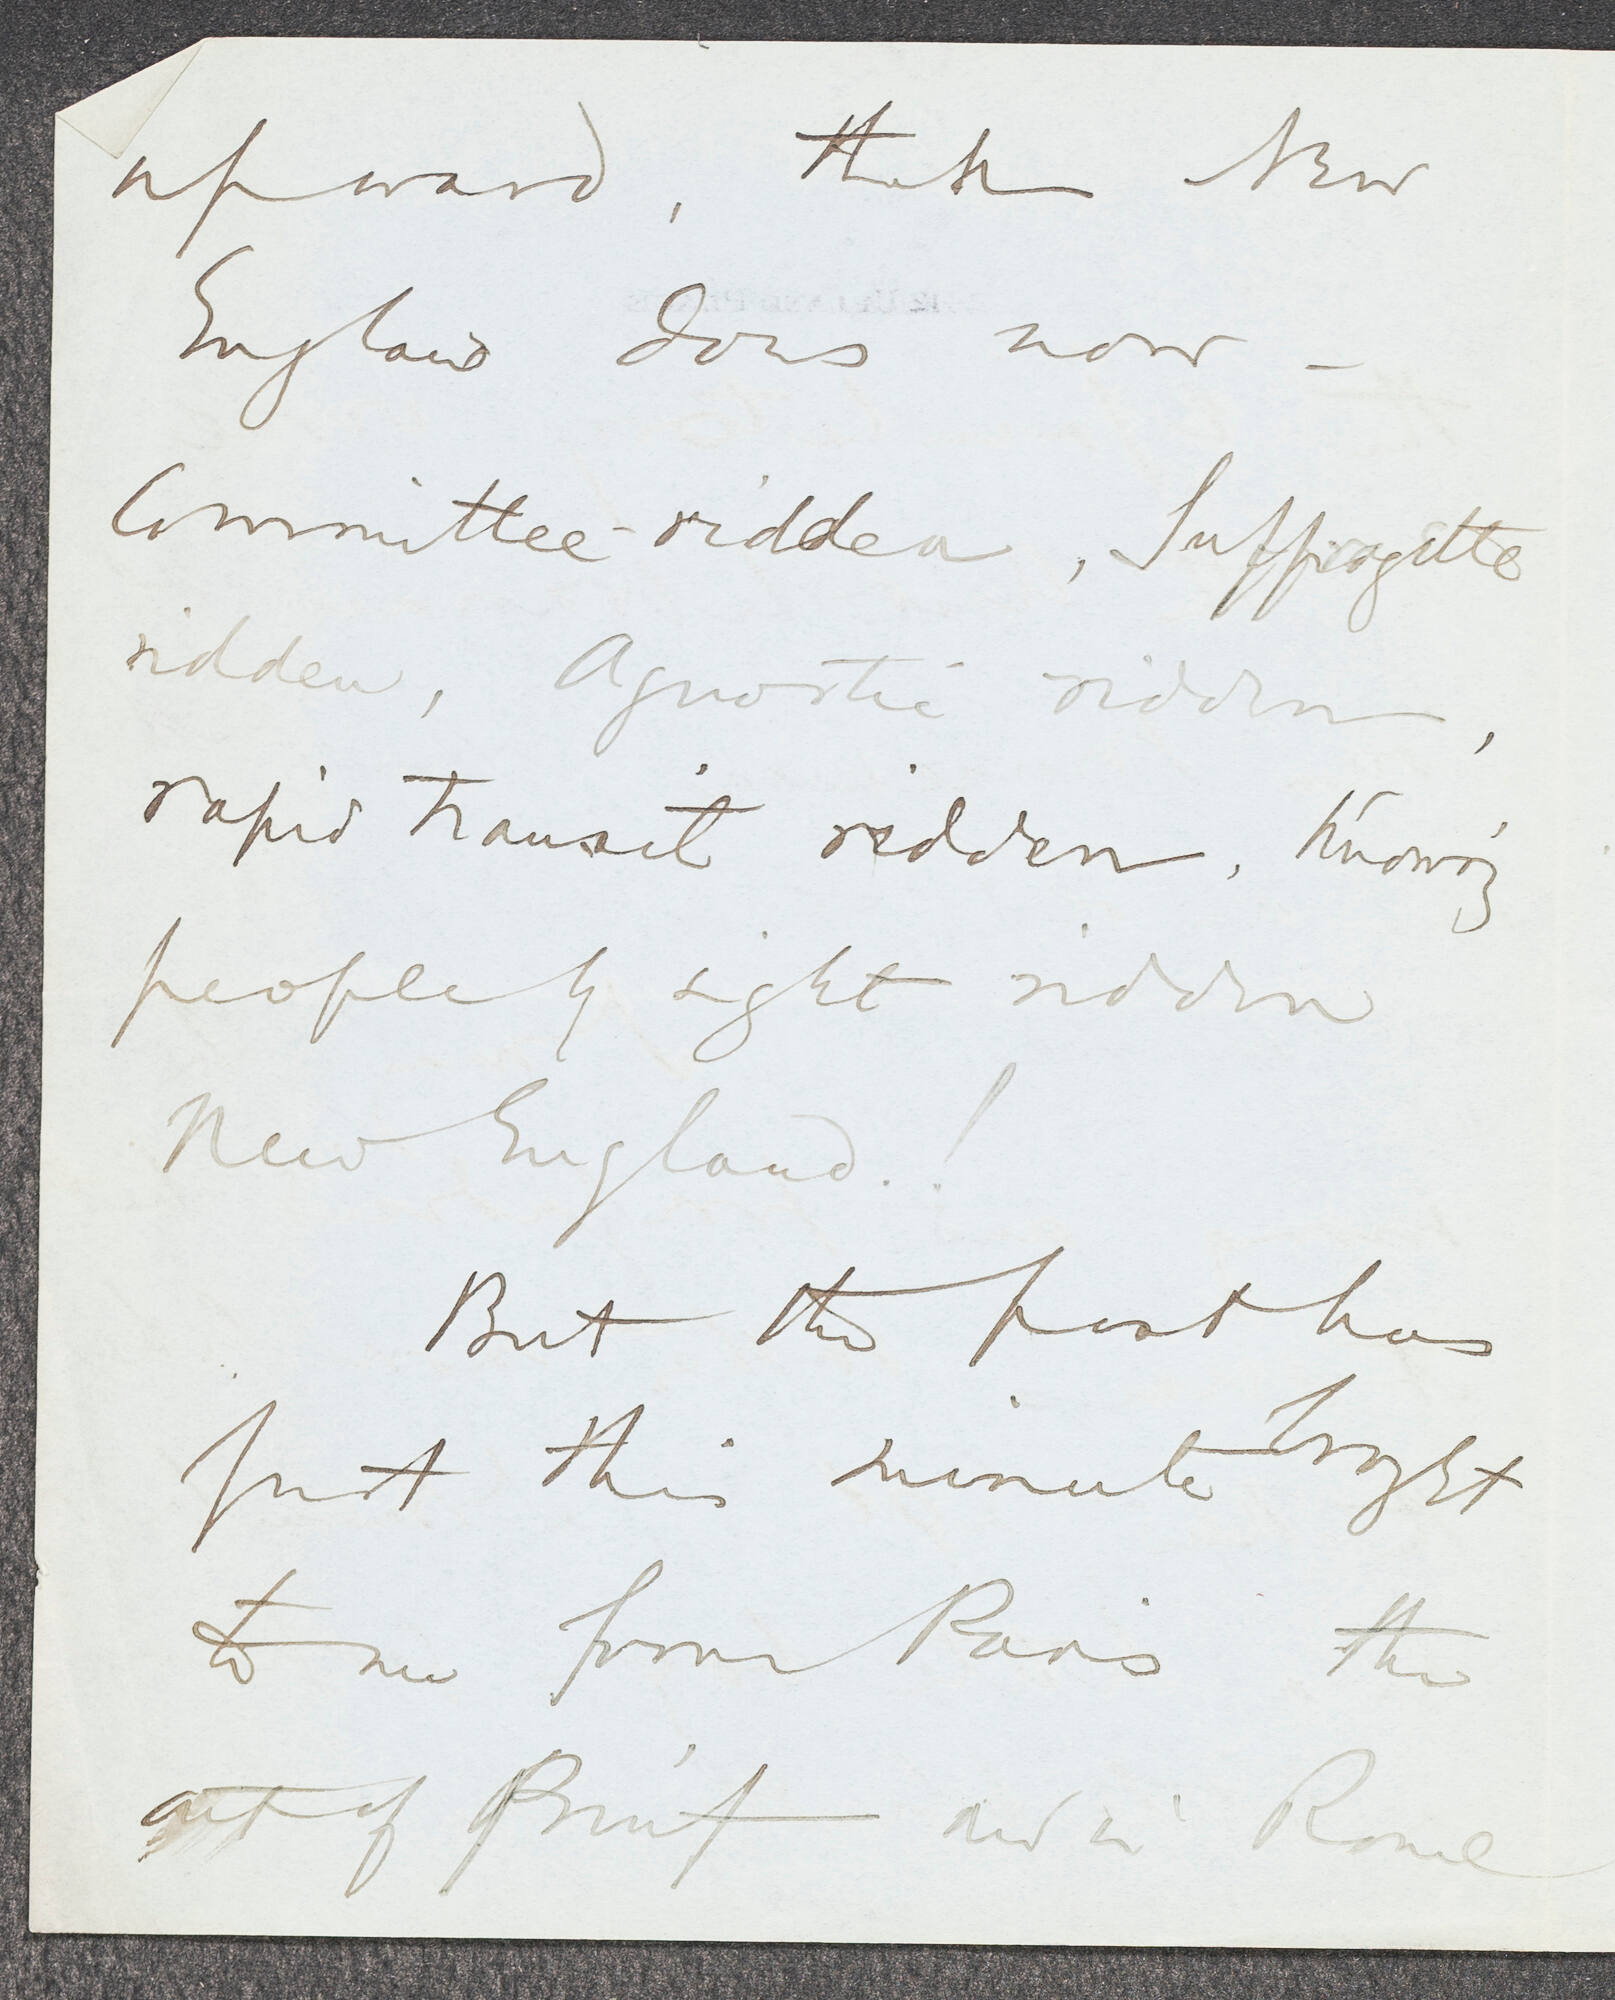 upward, than New
England does now –
Committee-ridden, Suffragette
ridden, Agnostic ridden,
rapid transit ridden, Knowing
people by sight ridden
New England.!
But the post has
just this minute brought
to me from Paris the
out of Print and in Rome